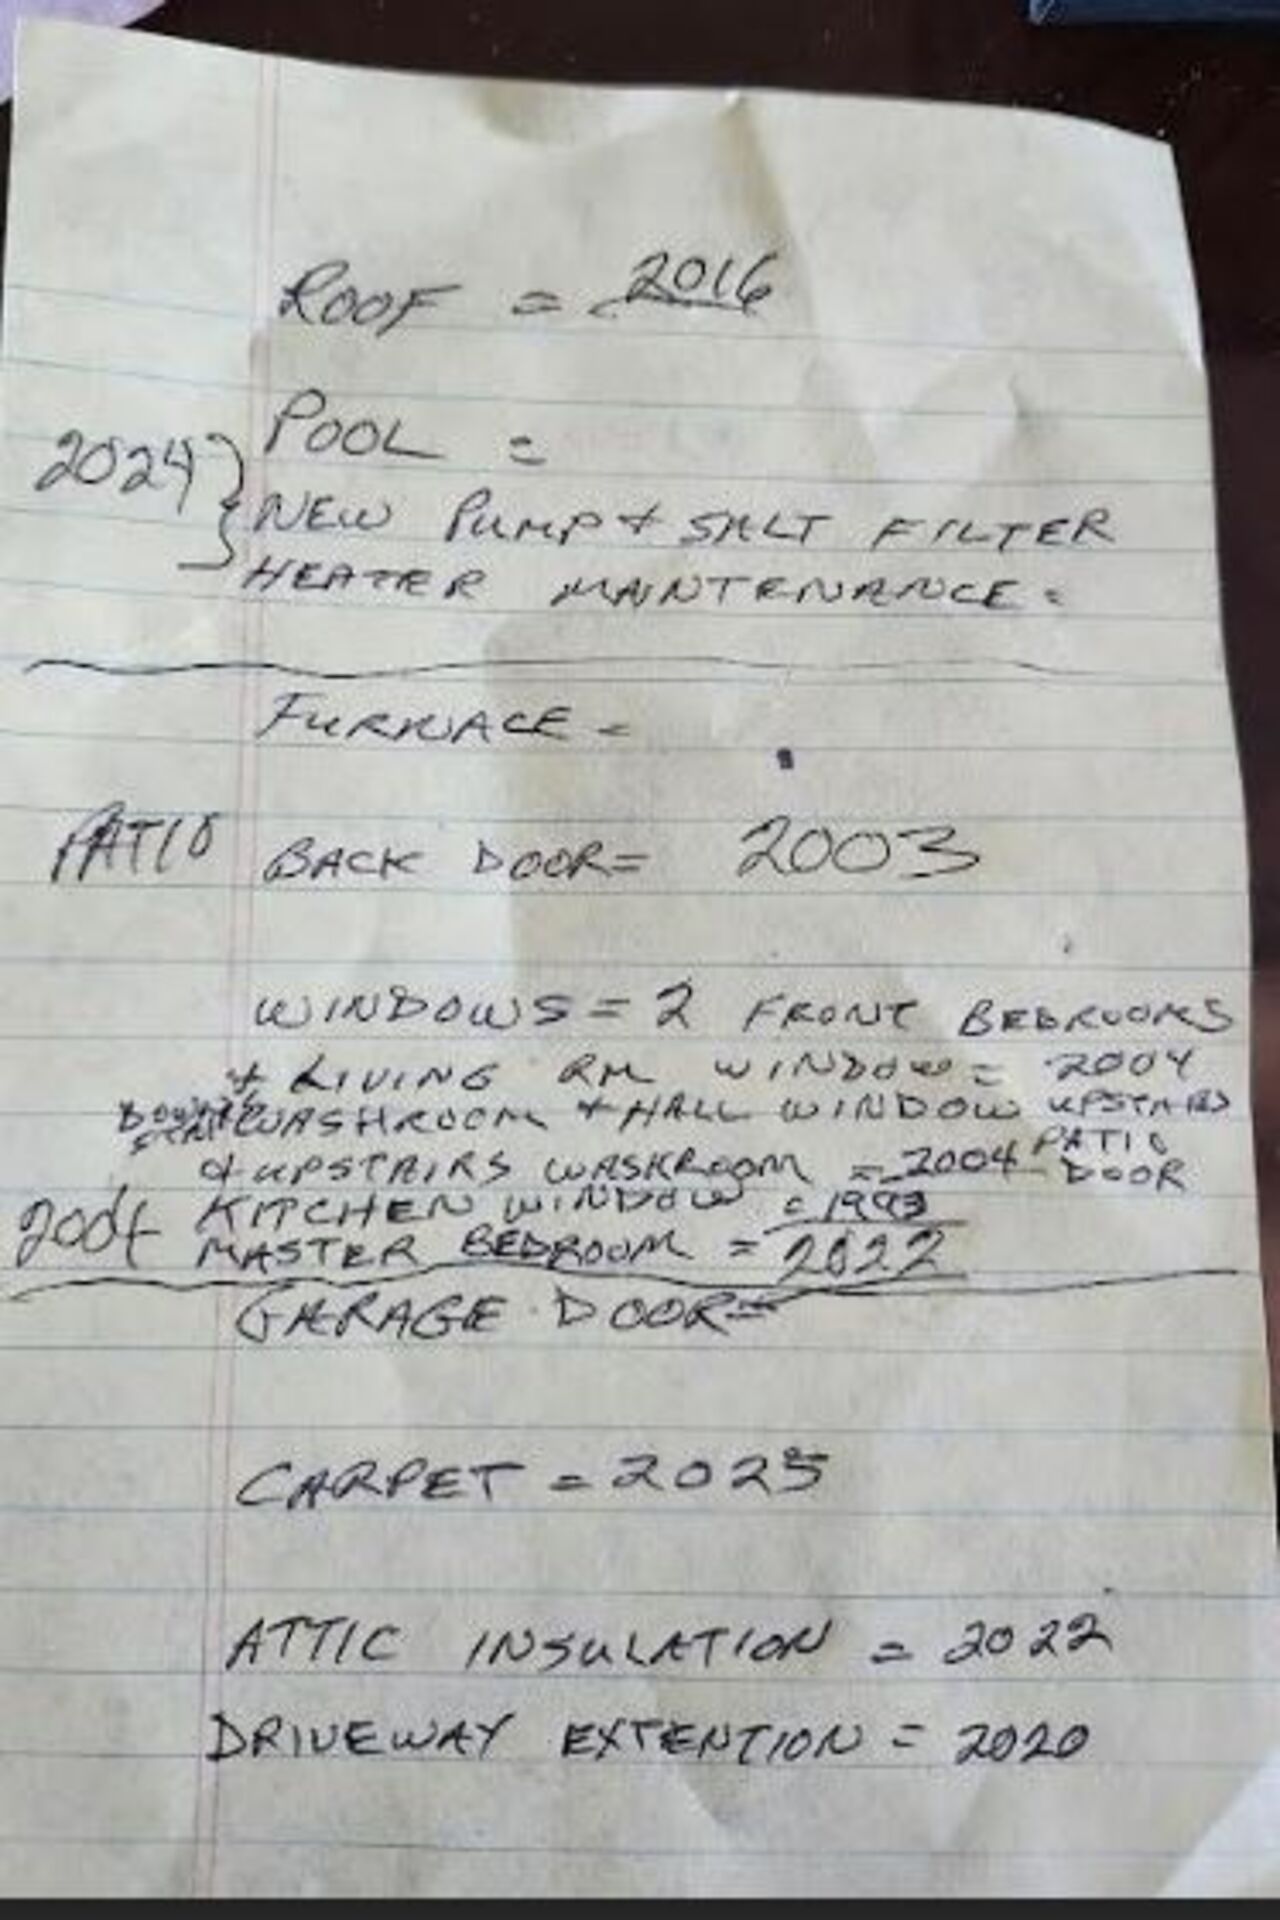 ROOF = 2016
POOL =
2024 } NEW PUMP + SALT FILTER
HEATER MAINTENANCE =
FURNACE =
PATIO BACK DOOR = 2003
WINDOWS = 2 FRONT BEDROOMS
+ LIVING RM WINDOW = 2004
WASHROOM + HALL WINDOW UPSTAIRS
+ UPSTAIRS WASHROOM = 2004 PATIO DOOR
2004 KITCHEN WINDOW = 1993
MASTER BEDROOM = 2022
GARAGE DOOR =
CARPET = 2025
ATTIC INSULATION = 2022
DRIVEWAY EXTENTION = 2020